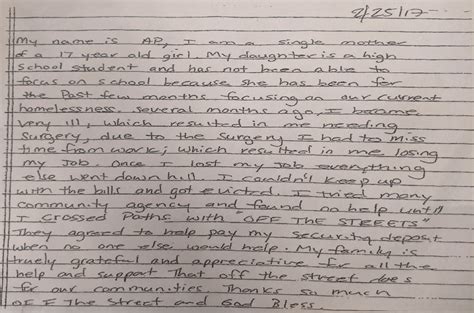 2/25/17
My name is AP, I am a single mother
of a 17 year old girl. My daughter is a high
School student and has not been able to
focus on school because she has been for
the Past few months focusing on our current
homelessness. Several months ago, I became
very ill, which resulted in me needing
Surgery, due to the Surgery I had to miss
time from work; which resulted in me losing
my Job. Once I lost my Job everything
else went down hill. I couldn't keep up
with the bills and got evicted. I tried many
community agency and found no help until
I crossed Paths with "OFF THE STREETS"
They agreed to help pay my security deposit
when no one else would help. My family is
truely grateful and appreciative for all the
help and support That off the street does
for our communities. Thanks so much
OFF The Street and God Bless.